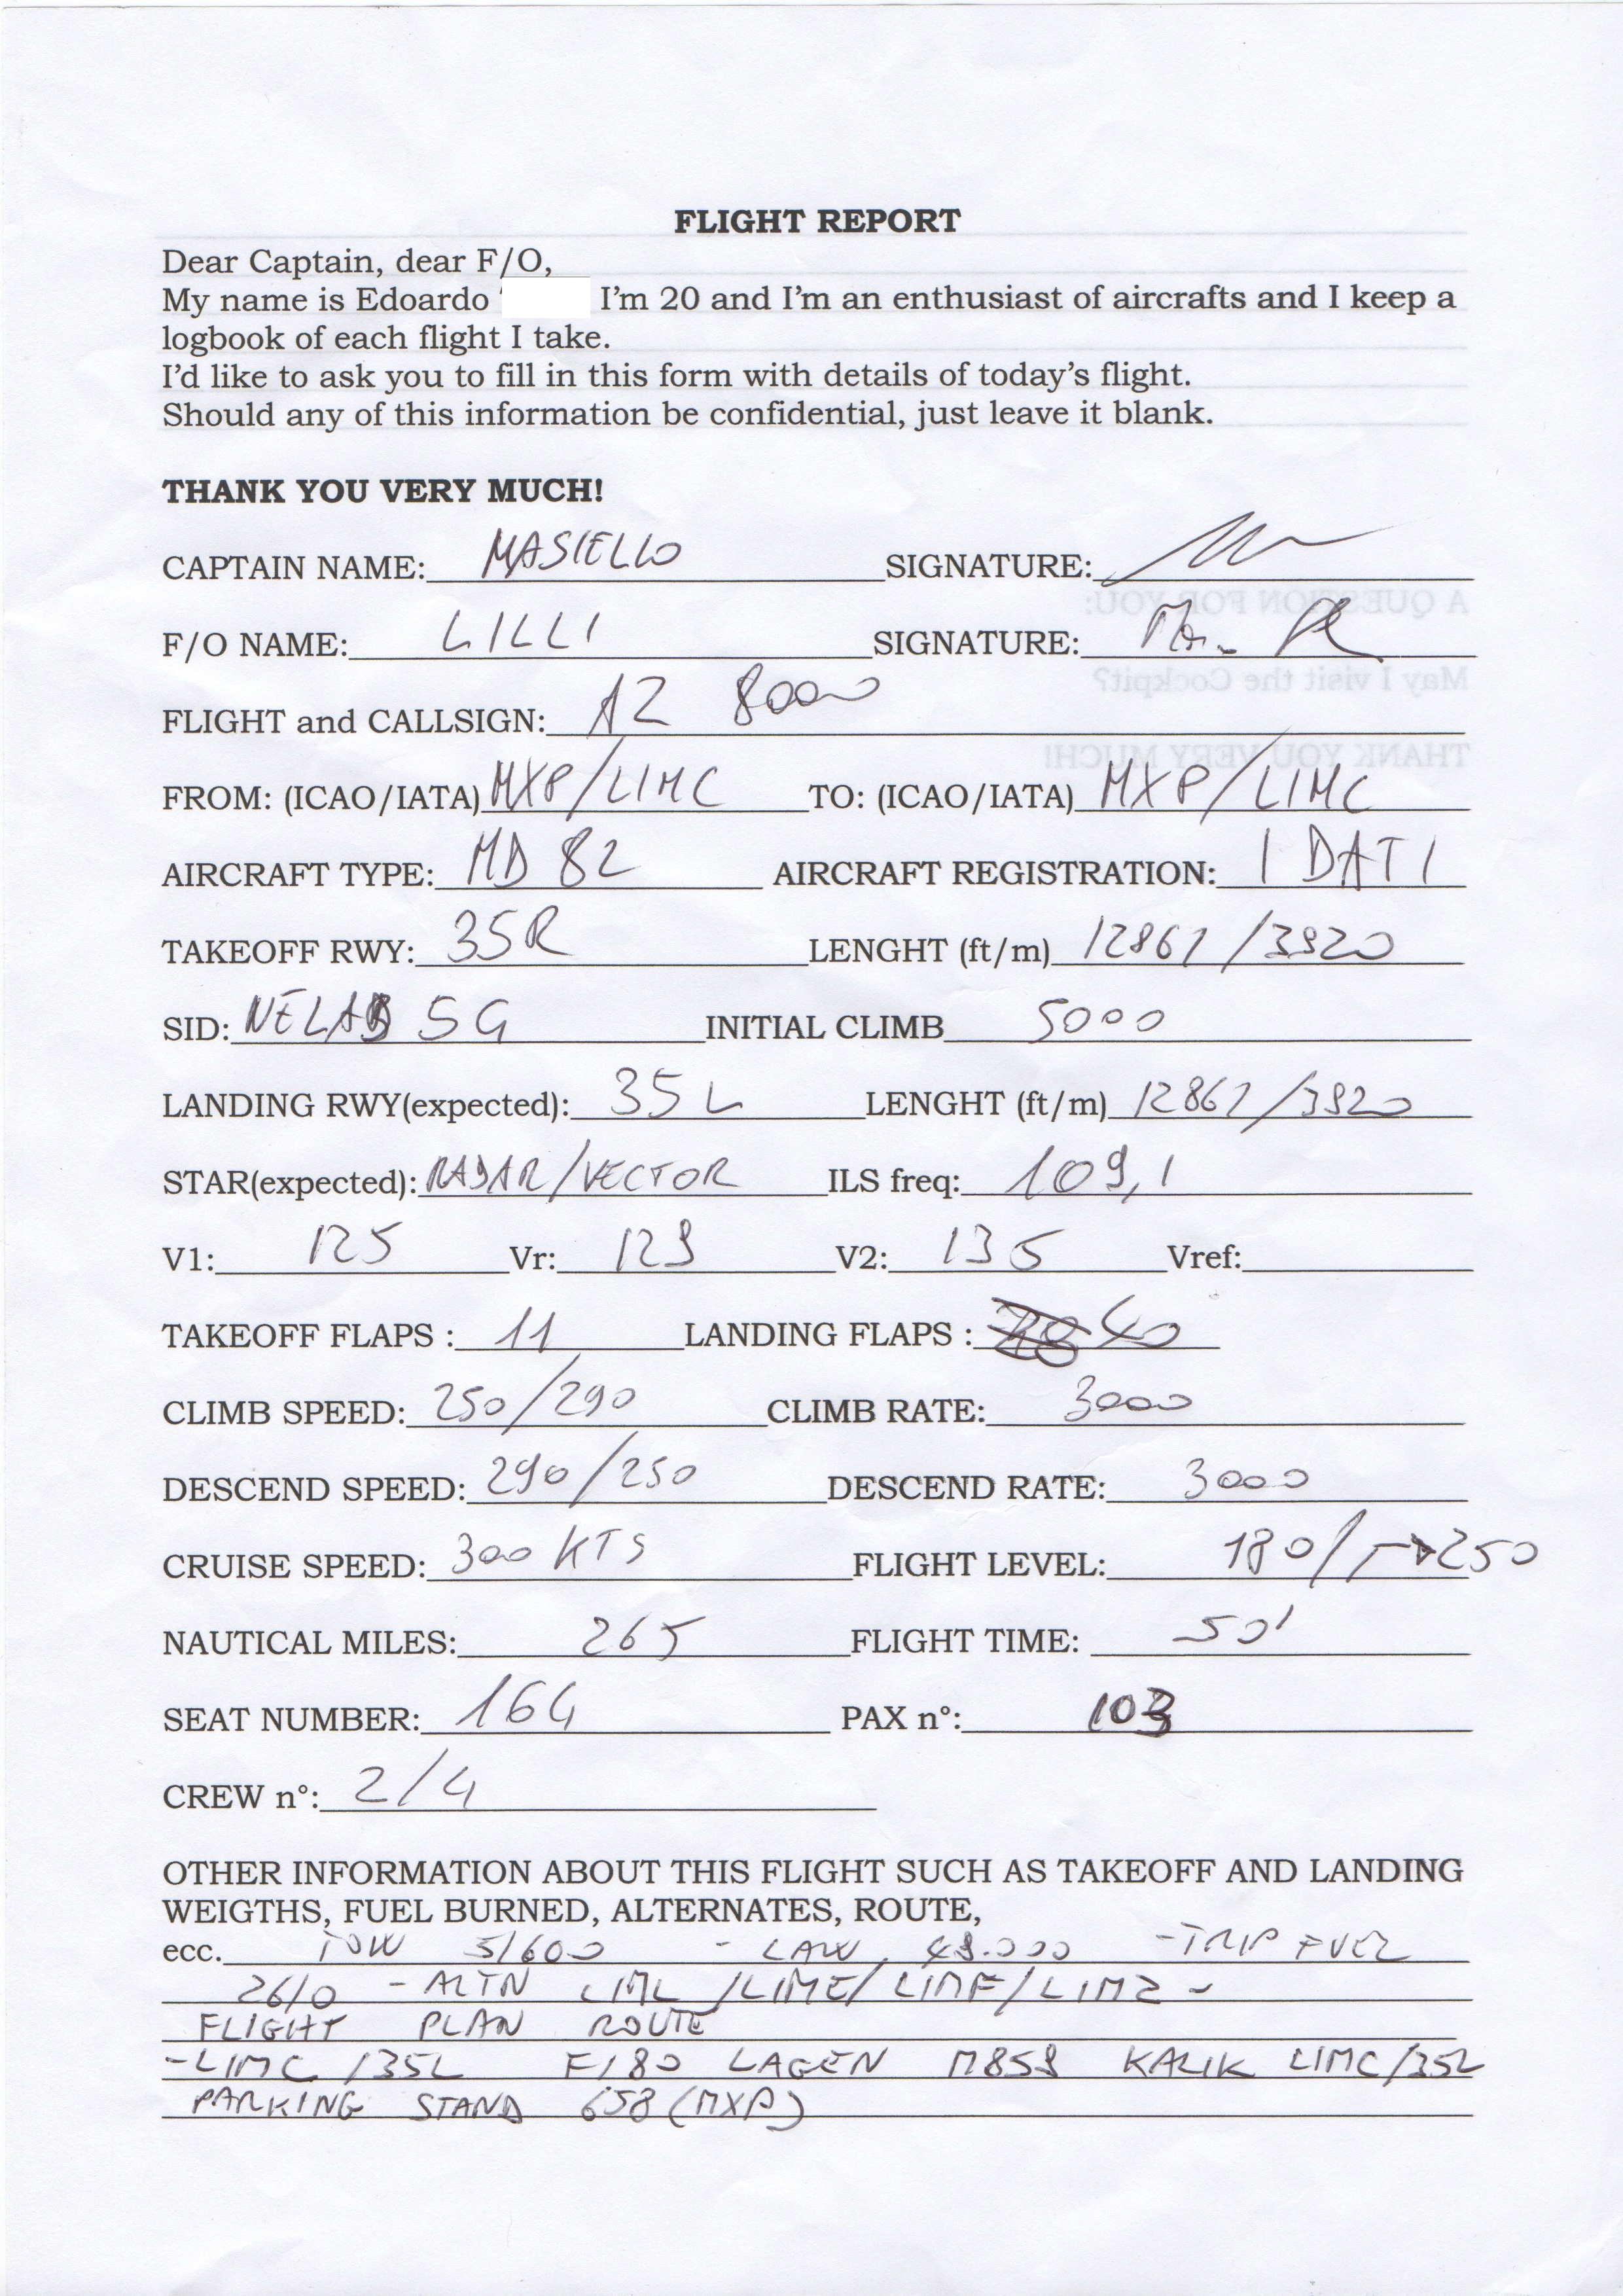 FLIGHT REPORT
Dear Captain, dear F/O,
My name is Edoardo I'm 20 and I'm an enthusiast of aircrafts and I keep a
logbook of each flight I take.
I'd like to ask you to fill in this form with details of today's flight.
Should any of this information be confidential, just leave it blank.
THANK YOU VERY MUCH!
CAPTAIN NAME: MASIELLO SIGNATURE:
A QUESTION FOR YOU:
F/O NAME: LILLI SIGNATURE:
May I visit the Cockpit?
FLIGHT and CALLSIGN: AZ 8000
THANK YOU VERY MUCH!
FROM: (ICAO/IATA) MXP/LIMC TO: (ICAO/IATA) MXP/LIMC
AIRCRAFT TYPE: MD 82 AIRCRAFT REGISTRATION: I DATI
TAKEOFF RWY: 35R LENGHT (ft/m) 12861/3920
SID: 5G INITIAL CLIMB 5000
LANDING RWY(expected): 35L LENGHT (ft/m) 12861/3920
STAR(expected): RADAR/VECTOR ILS freq: 109,1
V1: 125 Vr: 129 V2: 135 Vref:
TAKEOFF FLAPS : 11 LANDING FLAPS : 40
CLIMB SPEED: 250/290 CLIMB RATE: 3000
DESCEND SPEED: 290/250 DESCEND RATE: 3000
CRUISE SPEED: 300 KTS FLIGHT LEVEL: 180/ 250
NAUTICAL MILES: 265 FLIGHT TIME: 50'
SEAT NUMBER: 164 PAX n°: 103
CREW n°: 2/4
OTHER INFORMATION ABOUT THIS FLIGHT SUCH AS TAKEOFF AND LANDING
WEIGTHS, FUEL BURNED, ALTERNATES, ROUTE,
ecc. TOW 51600 - LAW 49.000 - TRIP FUEL
2610 - ALTN LIML/LIME/LIMF/LIMZ -
FLIGHT PLAN ROUTE
- LIMC/35L F180 LAGEN M859 KALIK LIMC/35L
PARKING STAND 658 (MXP)